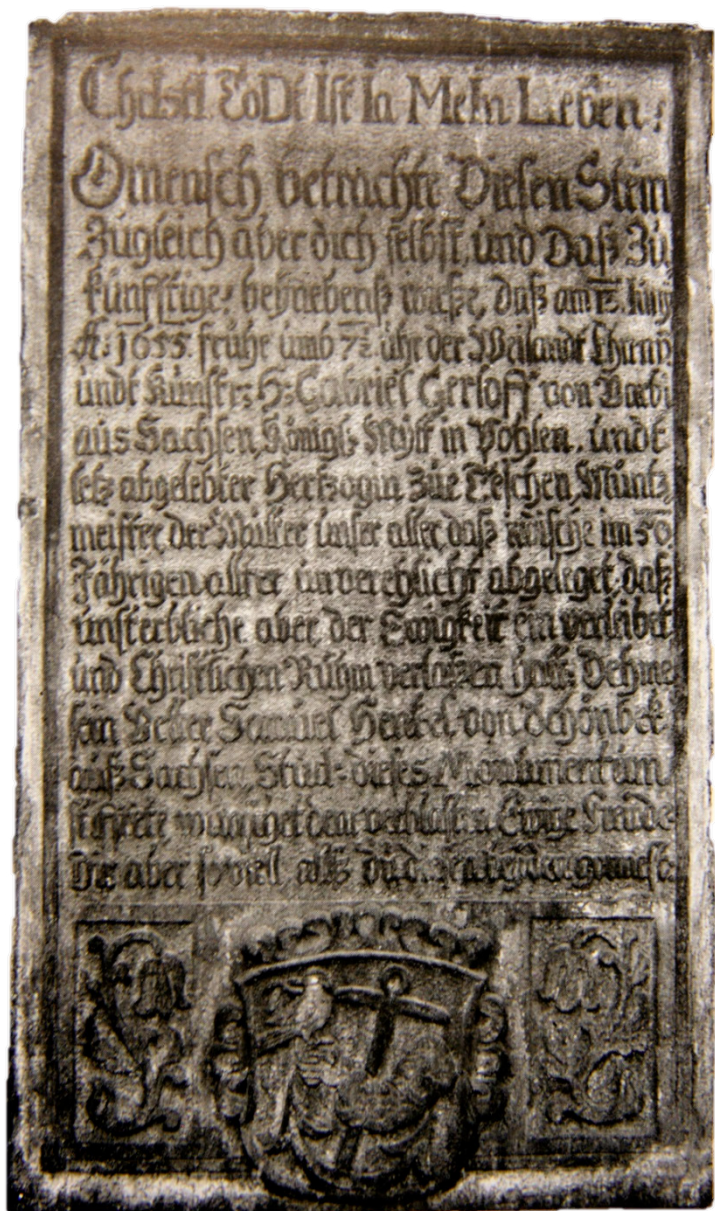 Christi Todt Ist Ia Mein Leben:
O mensch betrachte Diesen Stein
Zugleich aber dich selbst, und Daß Zu
künfftige: beÿnebenß wiße, daß am 12. Iuny
A: 1655. frühe umb 7½ uhr der Weilandt Ehrnv
undt Kunstr: H: Gabriel Gerloff von Barbi
aus Sachsen, Königl: Maÿst in Pohlen, undt
letz abgelebter Hertzogin Zue Teschen, Müntz
meister, der Mutter unser aller, daß irdische im 50
Jährigen allter unverehlicht abgeleget, daß
unsterbliche aber, der Ewigkeit ein verleibet,
und Christlichen Ruhm verlaßen hatt: Dehme
sein Vetter Samuel Henkel von Schönbek
auß Sachsen, Stud: dieses Monumentum
setzete, wunschet dem verblasten Ewige Freude
Dir aber soviell, alß du beÿden